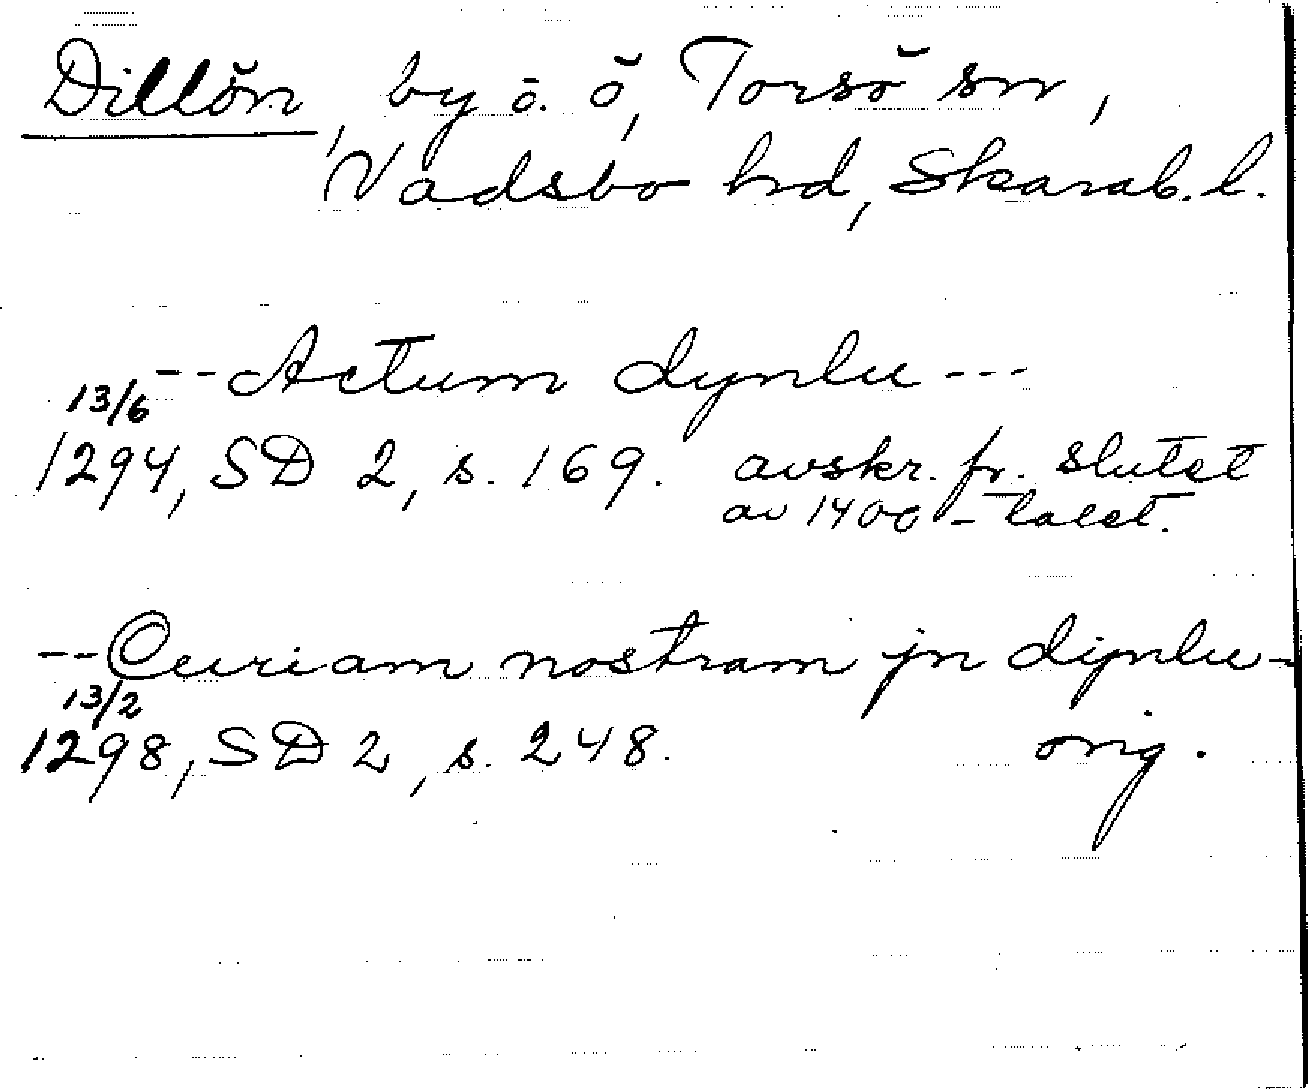 Dillön, by o. ö, Torsö sn,
Vadsbo hd, Skarab. l.
-- Actum dynlu ---
13/6
1294, SD 2, s. 169. avskr. fr. slutet
av 1400-talet.
-- Curiam nostram jn dijnlu -
13/2
1298, SD 2, s. 248. orig.